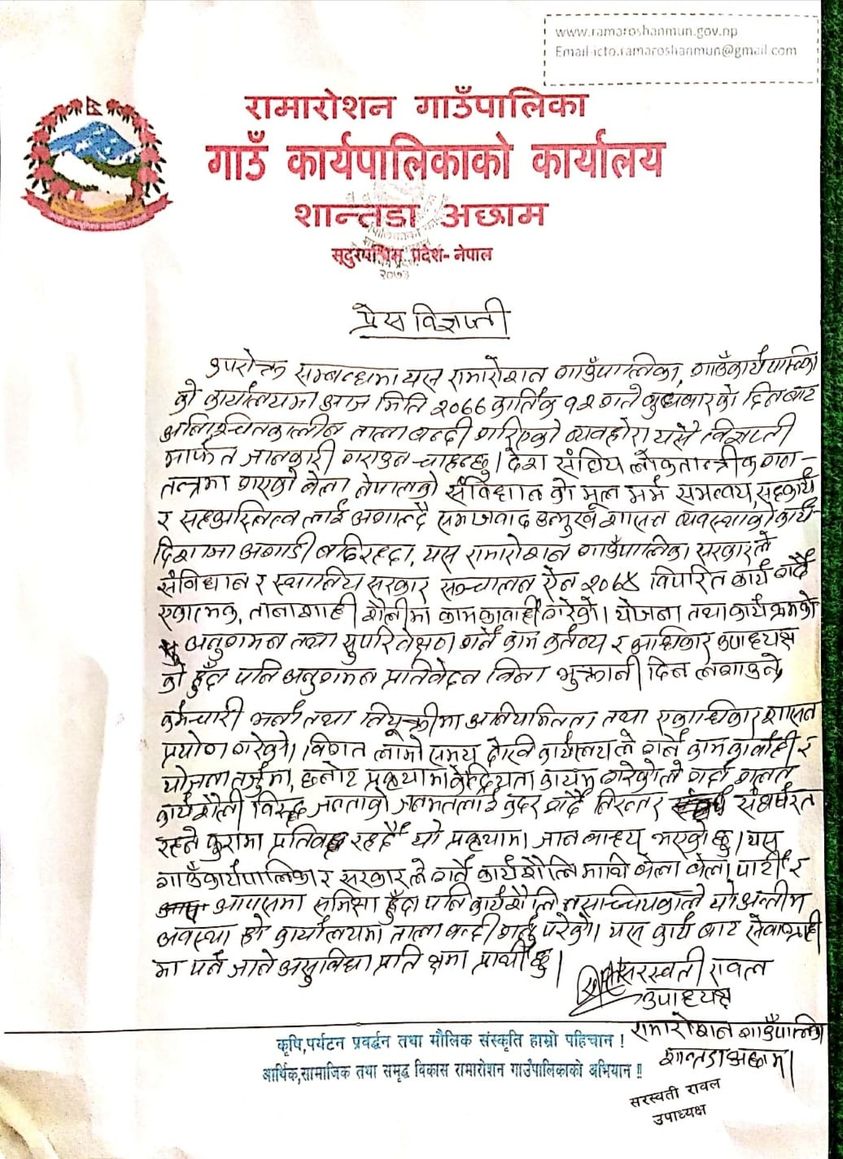 www.ramaroshanmun.gov.np
Email-icto.ramaroshanmun@gmail.com
रामारोशन गाउँपालिका
गाउँ कार्यपालिकाको कार्यालय
शान्तडा अछाम
सूदुरपश्चिम प्रदेश- नेपाल
२०७३
प्रेस विज्ञप्ती
उपरोक्त सम्बन्धमा यस रामारोशन गाउँपालिका, गाउँकार्यपालिका
को कार्यालयमा आज मिति २०७७ कार्तिक १२ गते बुधबारको दिनबाट
अनिश्चितकालीन तालाबन्दी गरिएको व्यवहोरा यसै विज्ञप्ती
मार्फत जानकारी गराउन चाहन्छु। देश संघिय लोकतान्त्रीक गण-
तन्त्रमा गएको बेला नेपालको संविधान को मूल मर्म समन्वय, सहकार्य
र सहअस्तित्व लाई अगाल्दै समाजवाद उन्मुख शासन व्यवस्थाको कार्य-
दिशामा अगाडी बढिरहदा, यस रामारोशन गाउँपालिका सरकारले
संविधान र स्थानिय सरकार सञ्चालन ऐन २०७४ विपरित कार्य गर्दै
एकात्मक, तानाशाही शैलीमा कामकावाही गरेको। योजना तथा कार्यक्रमको
अनुगमन तथा सुपरिवेक्षण गर्ने काम कर्तव्य र अधिकार उपाध्यक्ष
को हुँदा पनि अनुगमन प्रतिवेदन विना भुक्तानी दिन लगाउने,
कर्मचारी भर्ना तथा नियूक्तीमा अनियमितता तथा एकाधिकार शासन
प्रयोग गरेको। विगत लामो समय देखि कार्यालयले गर्ने काम कार्वाही र
योजना तर्जुमा, छनोट प्रकृयामा केन्द्रियता कायम गरेकोले गर्दा गलत
कार्यशैली विरुद्ध जनताको जनमतलाई कदर गर्दै निरन्तर संघर्षरत
रहने कुरामा प्रतिवद्ध रहदै यो प्रकृयामा जान बाध्य भएको छु। यस
गाउँकार्यपालिका र सरकारले गर्ने कार्यशैलि माथि बेला बेला पार्टी र
आपसमा समिक्षा हुँदा पनि कार्यशैलि नसच्चिएकाले यो अन्तीम
अवस्था हो कार्यालयमा तालाबन्दी गर्नु परेको। यस कार्य बाट सेवाग्राही
मा पर्न जाने असुविधा प्रति क्षमा प्रार्थी छु।
सरस्वती रावल
उपाध्यक्ष
रामारोशन गाउँपालिका
शान्तडा अछाम।
कृषि,पर्यटन प्रवर्द्धन तथा मौलिक संस्कृति हाम्रो पहिचान !
आर्थिक,सामाजिक तथा समृद्ध विकास रामारोशन गाउँपालिकाको अभियान !!
सरस्वती रावल
उपाध्यक्ष